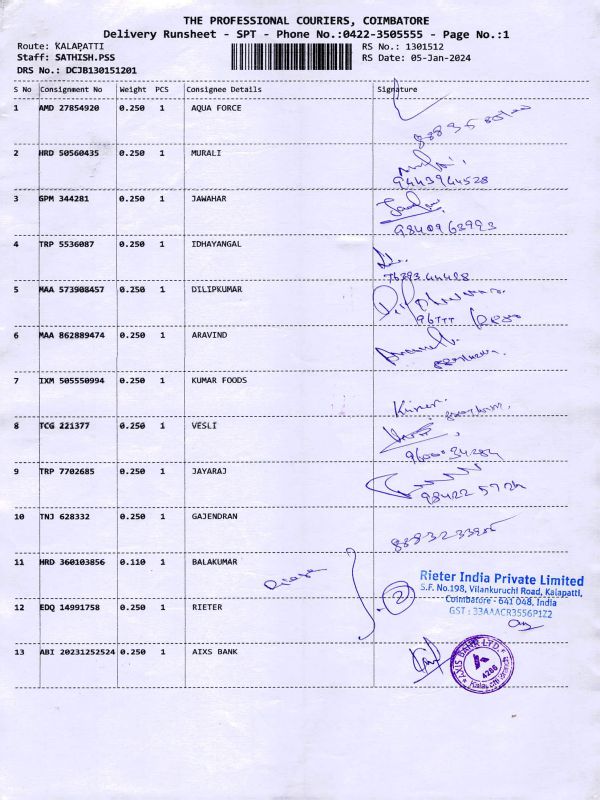 THE PROFESSIONAL COURIERS, COIMBATORE
Delivery Runsheet - SPT - Phone No.:0422-3505555 - Page No.:1
Route: KALAPATTI
RS No.: 1301512
Staff: SATHISH.PSS
RS Date: 05-Jan-2024
DRS No.: DCJB130151201
S No Consignment No Weight PCS Consignee Details Signature
1 AMD 27854920 0.250 1 AQUA FORCE
2 HRD 50560435 0.250 1 MURALI
9443944528
3 GPM 344281 0.250 1 JAWAHAR
9840963993
4 TRP 5536087 0.250 1 IDHAYANGAL
5 MAA 573908457 0.250 1 DILIPKUMAR
6 MAA 862889474 0.250 1 ARAVIND
7 IXM 505550994 0.250 1 KUMAR FOODS
8 TCG 221377 0.250 1 VESLI
9600034284
9 TRP 7702685 0.250 1 JAYARAJ
10 TNJ 628332 0.250 1 GAJENDRAN
11 HRD 360103856 0.110 1 BALAKUMAR
Rieter India Private Limited
S.F. No.198, Vilankuruchi Road, Kalapatti,
Coimbatore - 641 048, India
GST : 33AAACR3556P1Z2
2
12 EDQ 14991758 0.250 1 RIETER
13 ABI 20231252524 0.250 1 AIXS BANK
AXIS BANK LTD.
4286